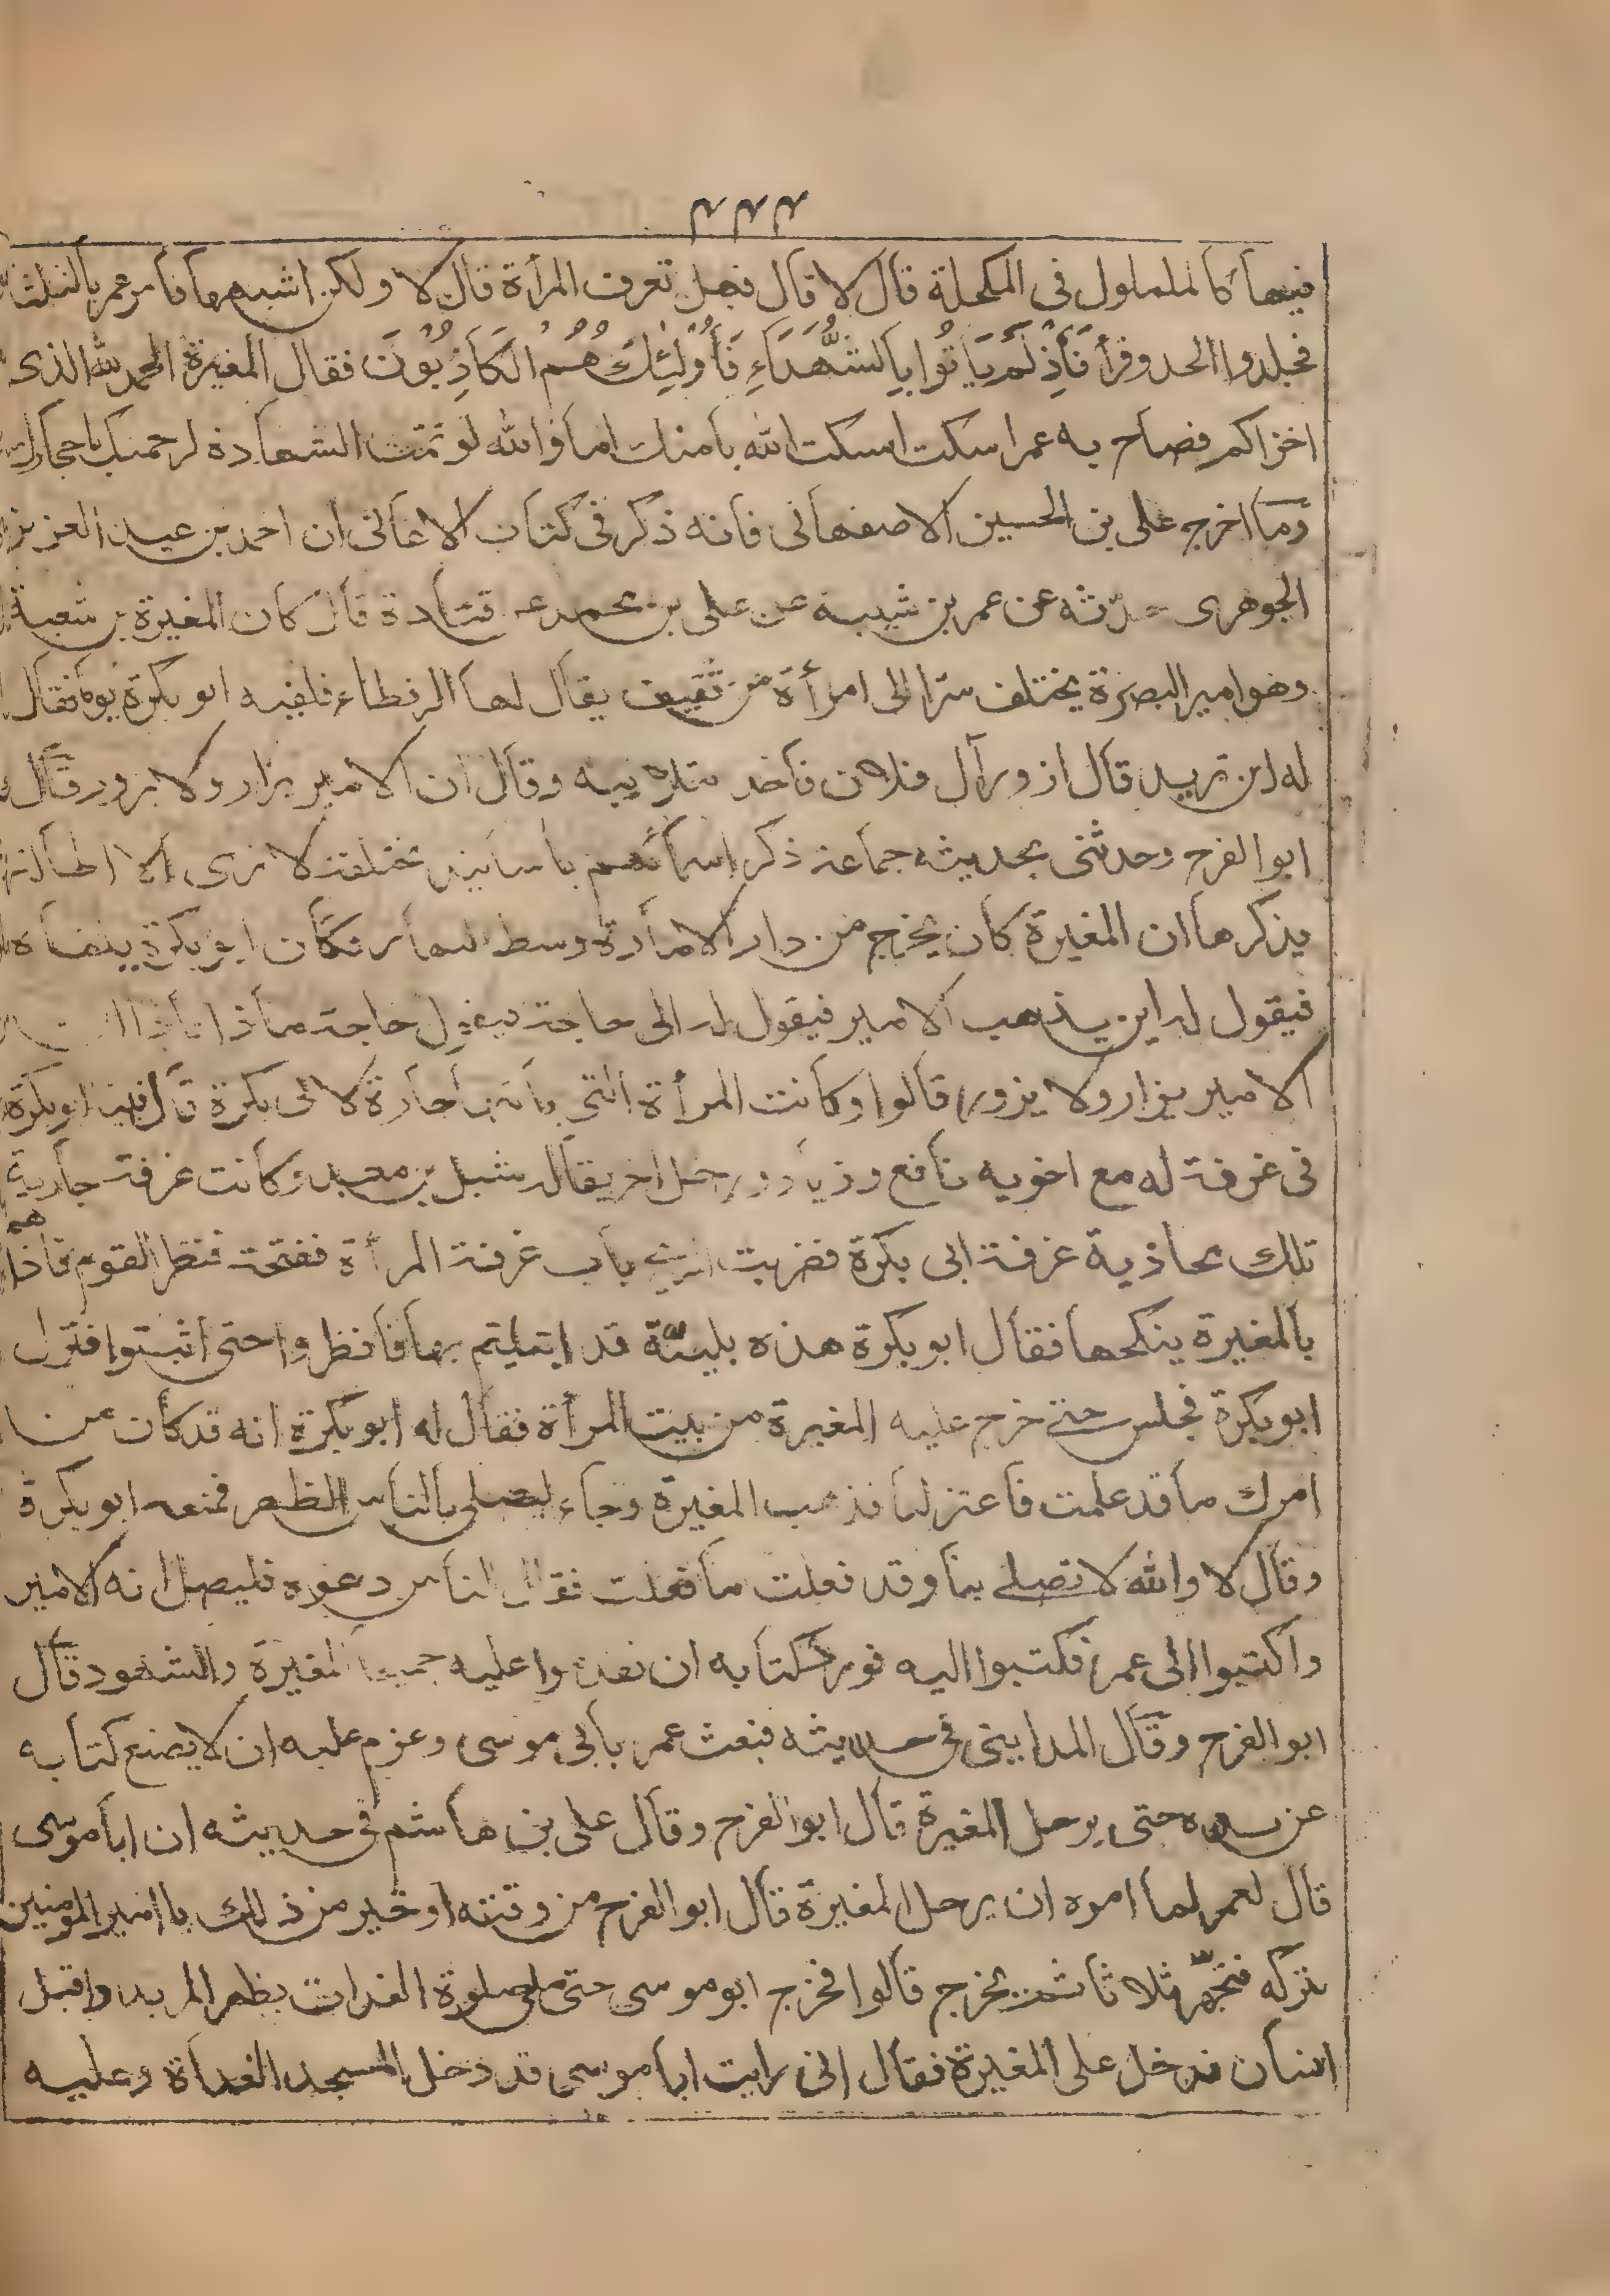 ٣٣٣
فيها كالملمول في المكحلة قال لا قال فهل تعرف المرأة قال لا ولكن اشبهها فامر عمر بالثلثة
فجلدوا الحد وقرأ فَأِذْلَمْ يَأتُوا بِالشُّهَدَاءِ فَأُولٰئِكَ هُمُ الْكَاذِبُونَ فقال المغيرة الحمد لله الذى
اخزاكم فصاح به عمر اسكت اسكت الله بامتك اما والله لو تمت الشهادة لرجمتك باحجارك
ومما اخرج على بن الحسين الاصفهانى فانه ذكر فى كتاب الاغانى ان احمد بن عبد العزيز
الجوهرى حدّثه عن عمر بن شيبه عن على بن محمد عن قتادة قال كان المغيرة بن شعبة
وهو امير البصرة يختلف سترا الى امرأة من ثقيف يقال لها الرفطاء فلقيه ابو بكرة يوما فقال
له اين تريد قال ازور آل فلان فاخذ بتلابيبه وقال ان الامير يزار ولا يزور قال
ابو الفرج وحدثنى بحديثه جماعة ذكر اسمائهم باسانيد مختلفة لا نرى
يذكرها ان المغيرة كان يخرج من دار الامارة وسط النهار فكان ابو بكرة يلقاه
فيقول له اين يذهب الامير فيقول له الى حاجة فيقول حاجة ماذا
الامير يزار ولا يزور قالوا وكانت المرأة التى ياتيها جارة لابى بكرة قال فبينا ابو بكرة
فى غرفة له مع اخويه نافع وزياد ورجل اخر يقال له شبل بن معبد وكانت غرفة جارية
تلك محاذية غرفة ابى بكرة فضربت الريح باب غرفة المرأة ففتحته فنظر القوم فاذا هم
بالمغيرة ينكحها فقال ابو بكرة هذه بليّة قد ابتليتم بها فانظروا حتى اثبتوا فنزل
ابو بكرة فجلس حتى خرج عليه المغيرة من بيت المرأة فقال له ابو بكرة انه قد كان من
امرك ما قد علمت فاعتزلنا فذهب المغيرة وجاء ليصلى بالناس الظهر فمنعه ابو بكرة
وقال لا والله لا تصلى بنا وقد فعلت ما فعلت فقال الناس دعوه فليصل انه الامير
واكتبوا الى عمر فكتبوا اليه فورد كتابه ان تقدموا عليه جميعا المغيرة والشهود قال
ابو الفرج وقال المداينى فى حديثه فبعث عمر بابى موسى وعزم عليه ان لا يضع كتابه
عن يده حتى يرحل المغيرة قال ابو الفرج وقال على بن هاشم فى حديثه ان ابا موسى
قال لعمر لما امره ان يرحل المغيرة قال ابو الفرج من وقته او خير من ذلك يا امير المومنين
تتركه فتجهّز ثلاثا ثم يخرج قالوا فخرج ابو موسى حتى صلى صلوة الغداة بظهر المربد واقبل
انسان فدخل على المغيرة فقال انى رايت ابا موسى قد دخل المسجد الغداة وعليه